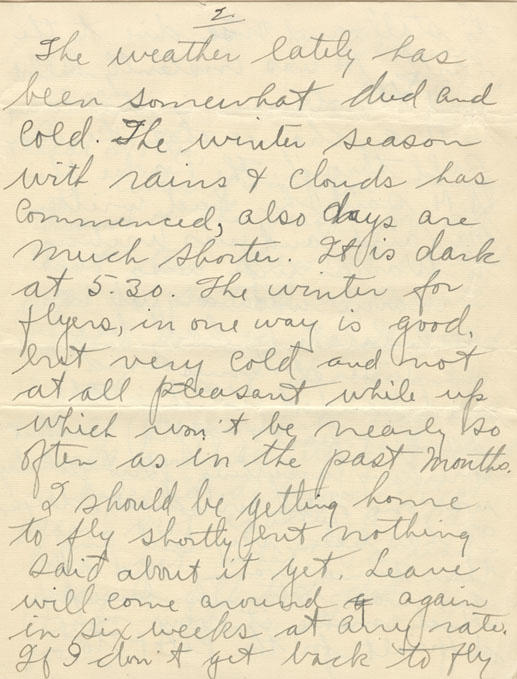 2
The weather lately has
been somewhat dud and
cold. The winter season
with rains & clouds has
commenced, also days are
much shorter. It is dark
at 5.30. The winter for
flyers, in one way is good,
but very cold and not
at all pleasant while up
which won't be nearly so
often as in the past months.
I should be getting home
to fly shortly but nothing
said about it yet. Leave
will come around again
in six weeks at any rate.
If I don't get back to fly